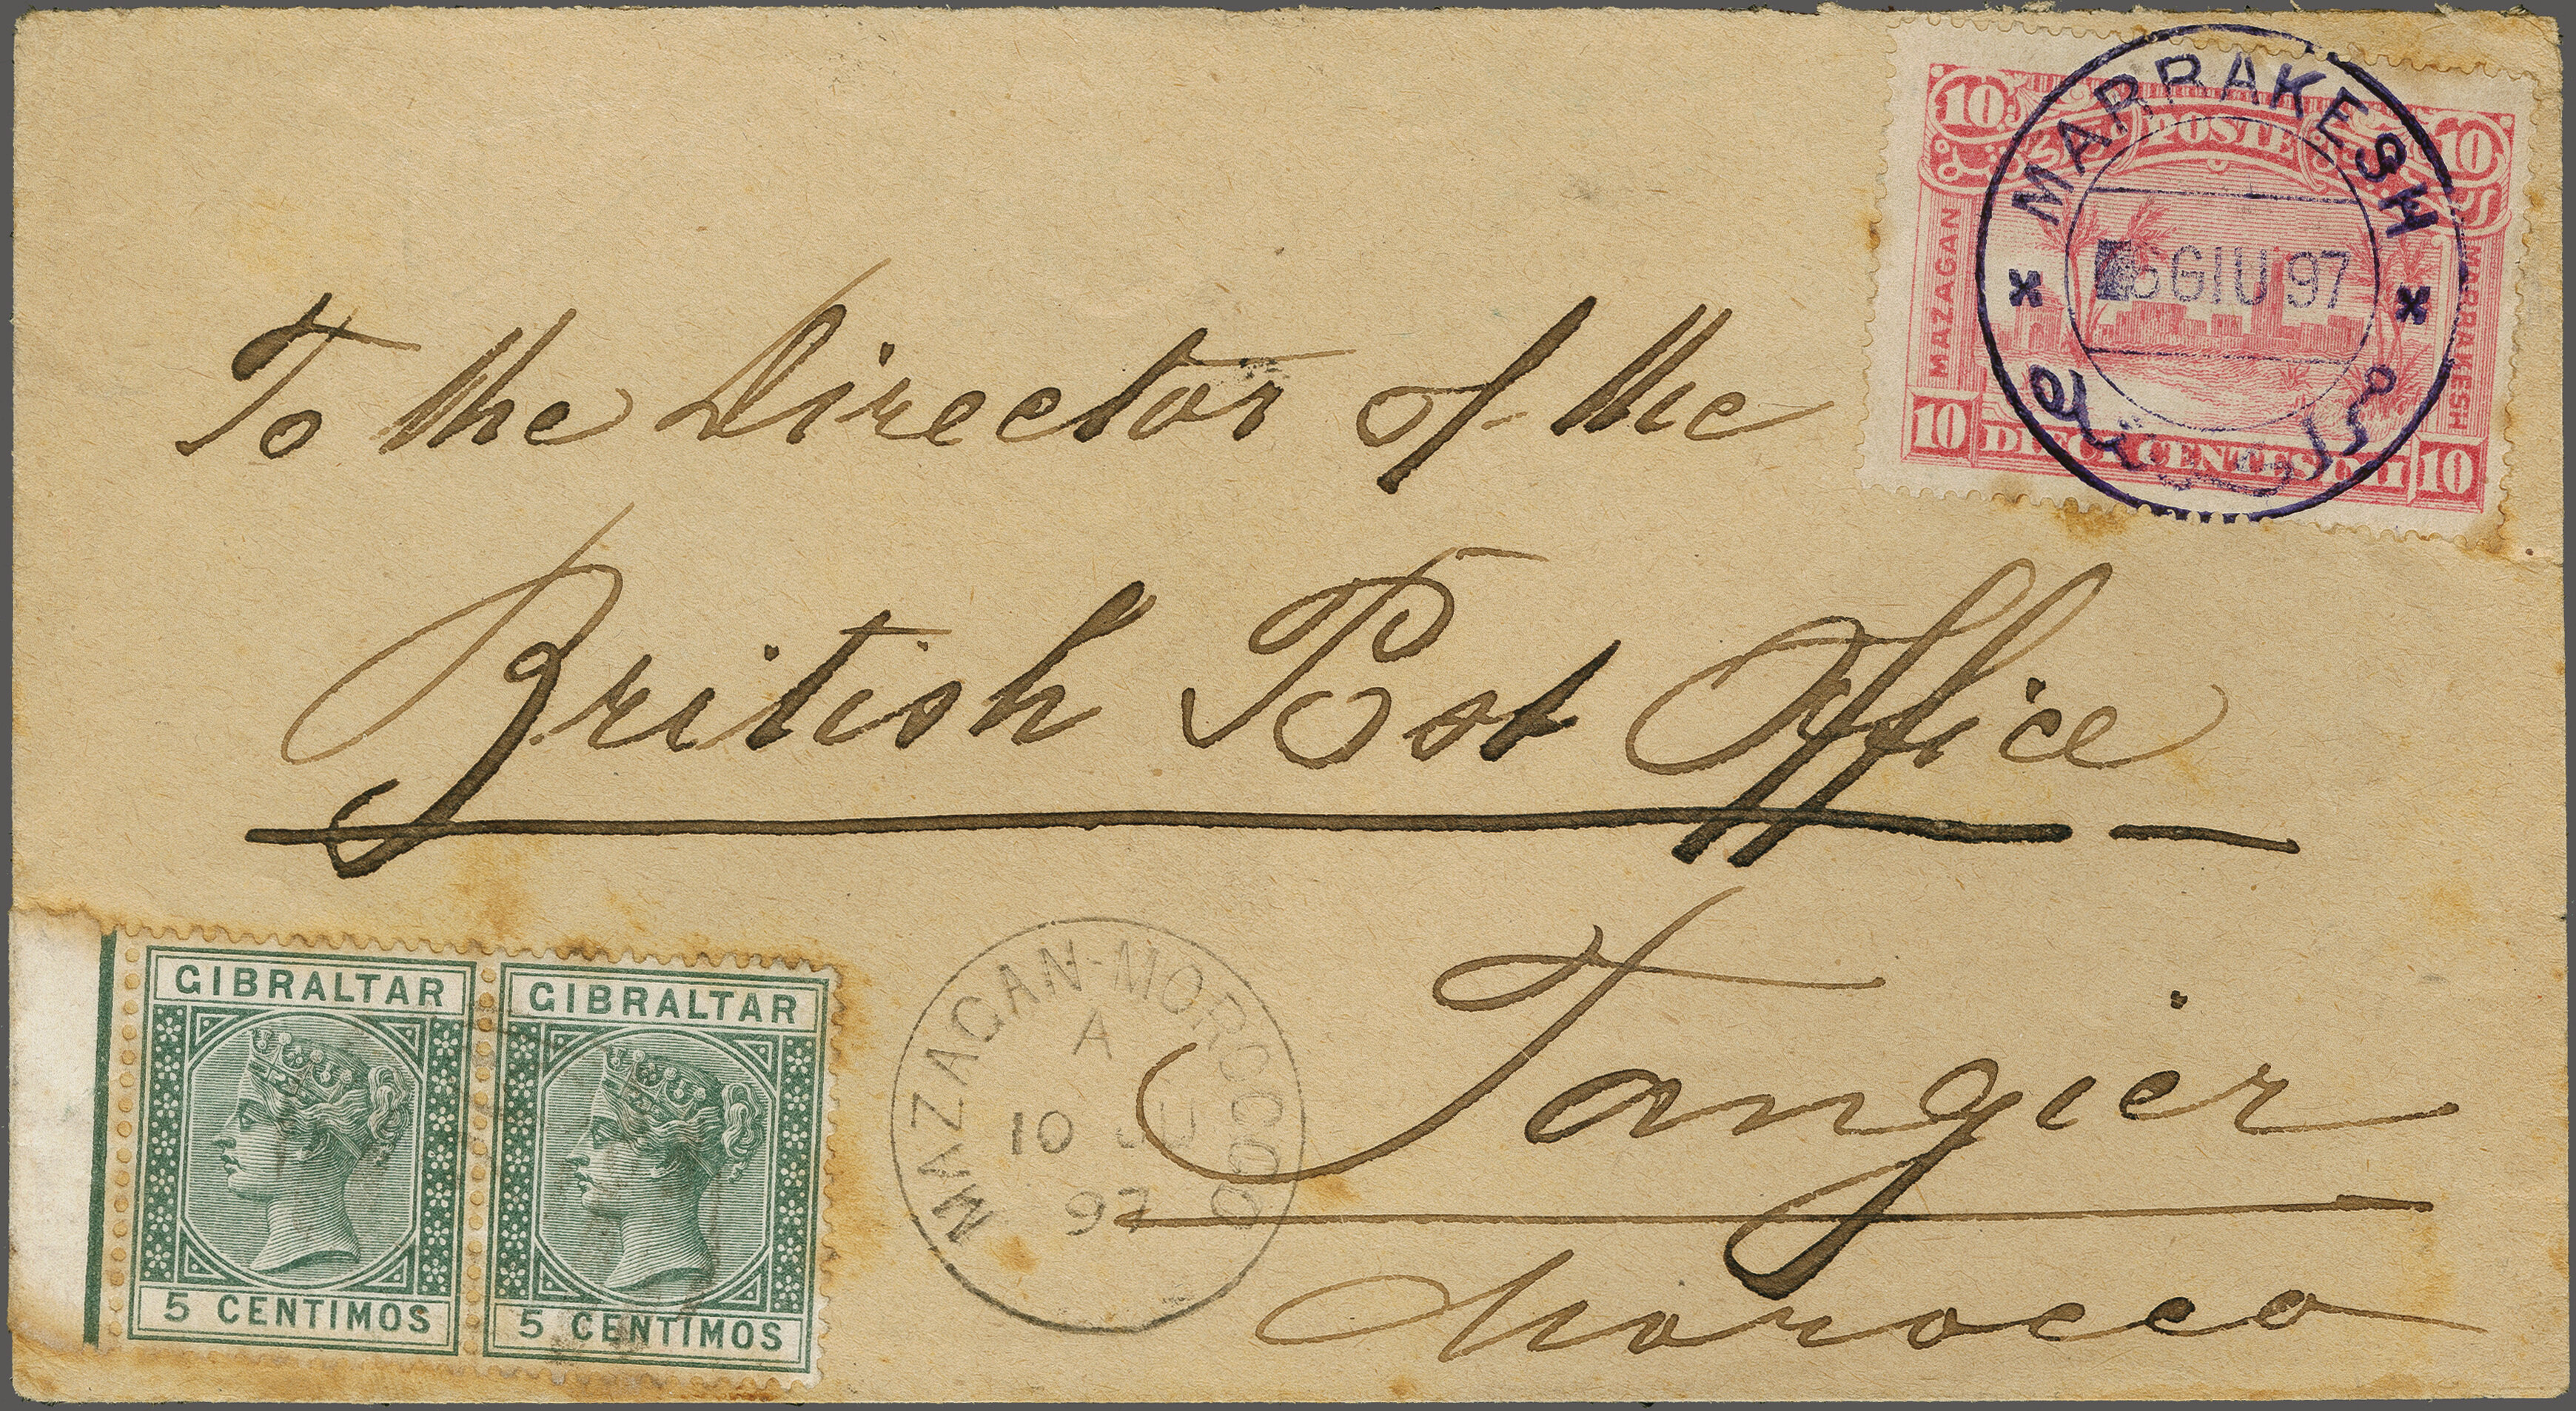 10 POSTE 10
MAZAGAN
MARRAKESH
10 DIECI CENTESIMI 10
MARRAKESH
6 GIU 97
مراكشة
To the Director of the
British Post Office
Tangier
Morocco
GIBRALTAR
5 CENTIMOS
GIBRALTAR
5 CENTIMOS
MAZAGAN-MOROCCO
A
10 JU
97